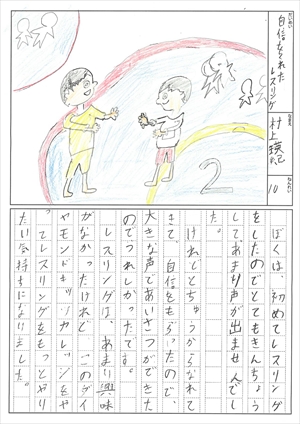 だいめい
自信をくれた
レスリング
なまえ
村上瑛己
ねんれい
10
2
ぼくは、初めてレスリング
をしたのでとてもきんちょう
して、あまり声が出ませんでし
た。
けれどとちゅうからなれて
きて、自信をもらったので、
大きな声であいさつができた
のでうれしかったです。
レスリングは、あまり興味
がなかったけれど、このダイ
ヤモンドキッズカレッジをや
ってレスリングをもっとやり
たい気持ちになりました。